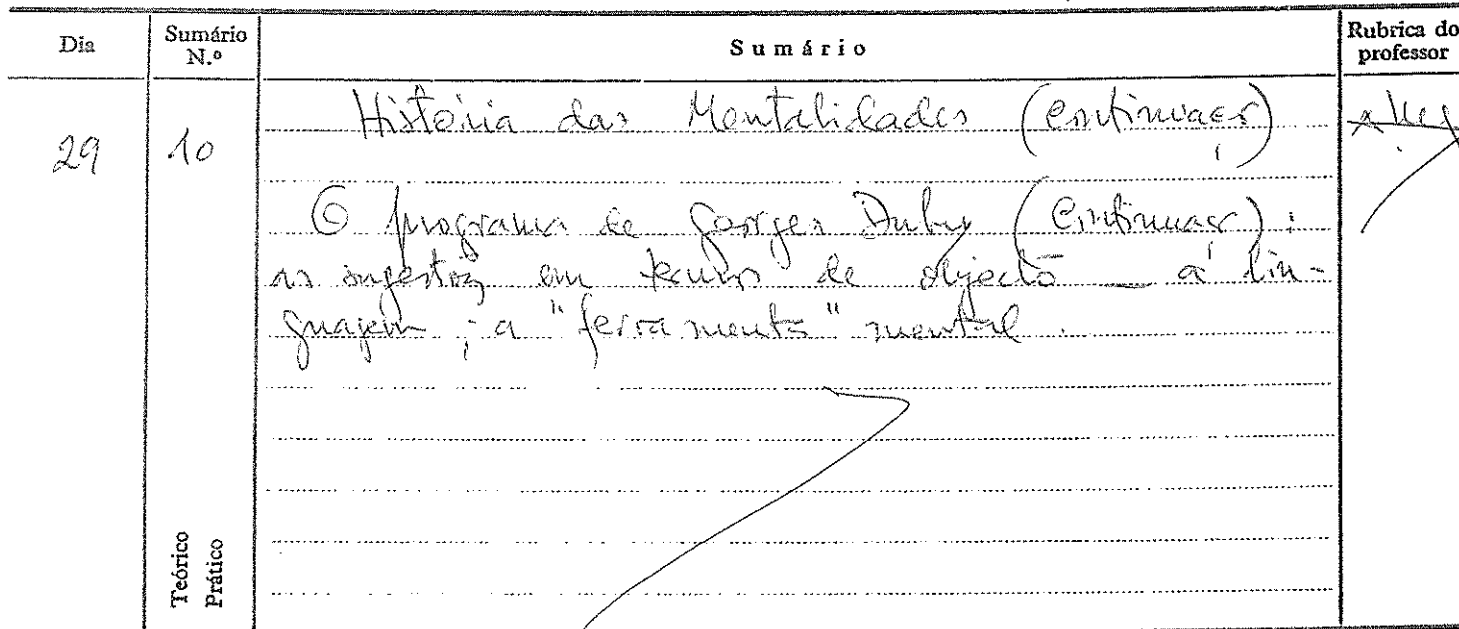 Dia
Sumário N.º
Sumário
Rubrica do professor
29
10
História das Mentalidades (Continuação)
O programa de Georges Duby (Continuação):
as sugestões em termos de objecto — a lin-
guagem; a "ferramenta" mental.
Teórico
Prático